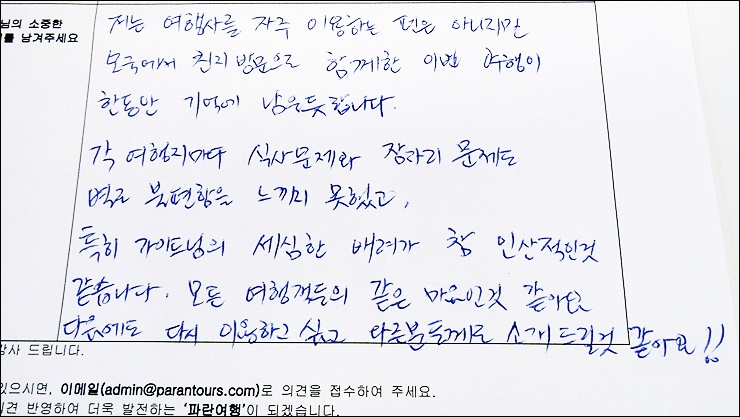 님의 소중한
를 남겨주세요
저는 여행사를 자주 이용하는 편은 아니지만
모국에서 친지 방문으로 함께한 이번 여행이
한동안 기억에 남을듯합니다.
각 여행지마다 식사문제와 잠자리 문제도
별로 불편함을 느끼지 못했고,
특히 가이드님의 세심한 배려가 참 인상적인것
같습니다. 모든 여행객들의 같은 마음인것 같아요
다음에도 다시 이용하고 싶고 다른분들께도 소개드릴것 같아요!!
감사 드립니다.
있으시면, 이메일(admin@parantours.com)로 의견을 접수하여 주세요.
의견 반영하여 더욱 발전하는 '파란여행'이 되겠습니다.